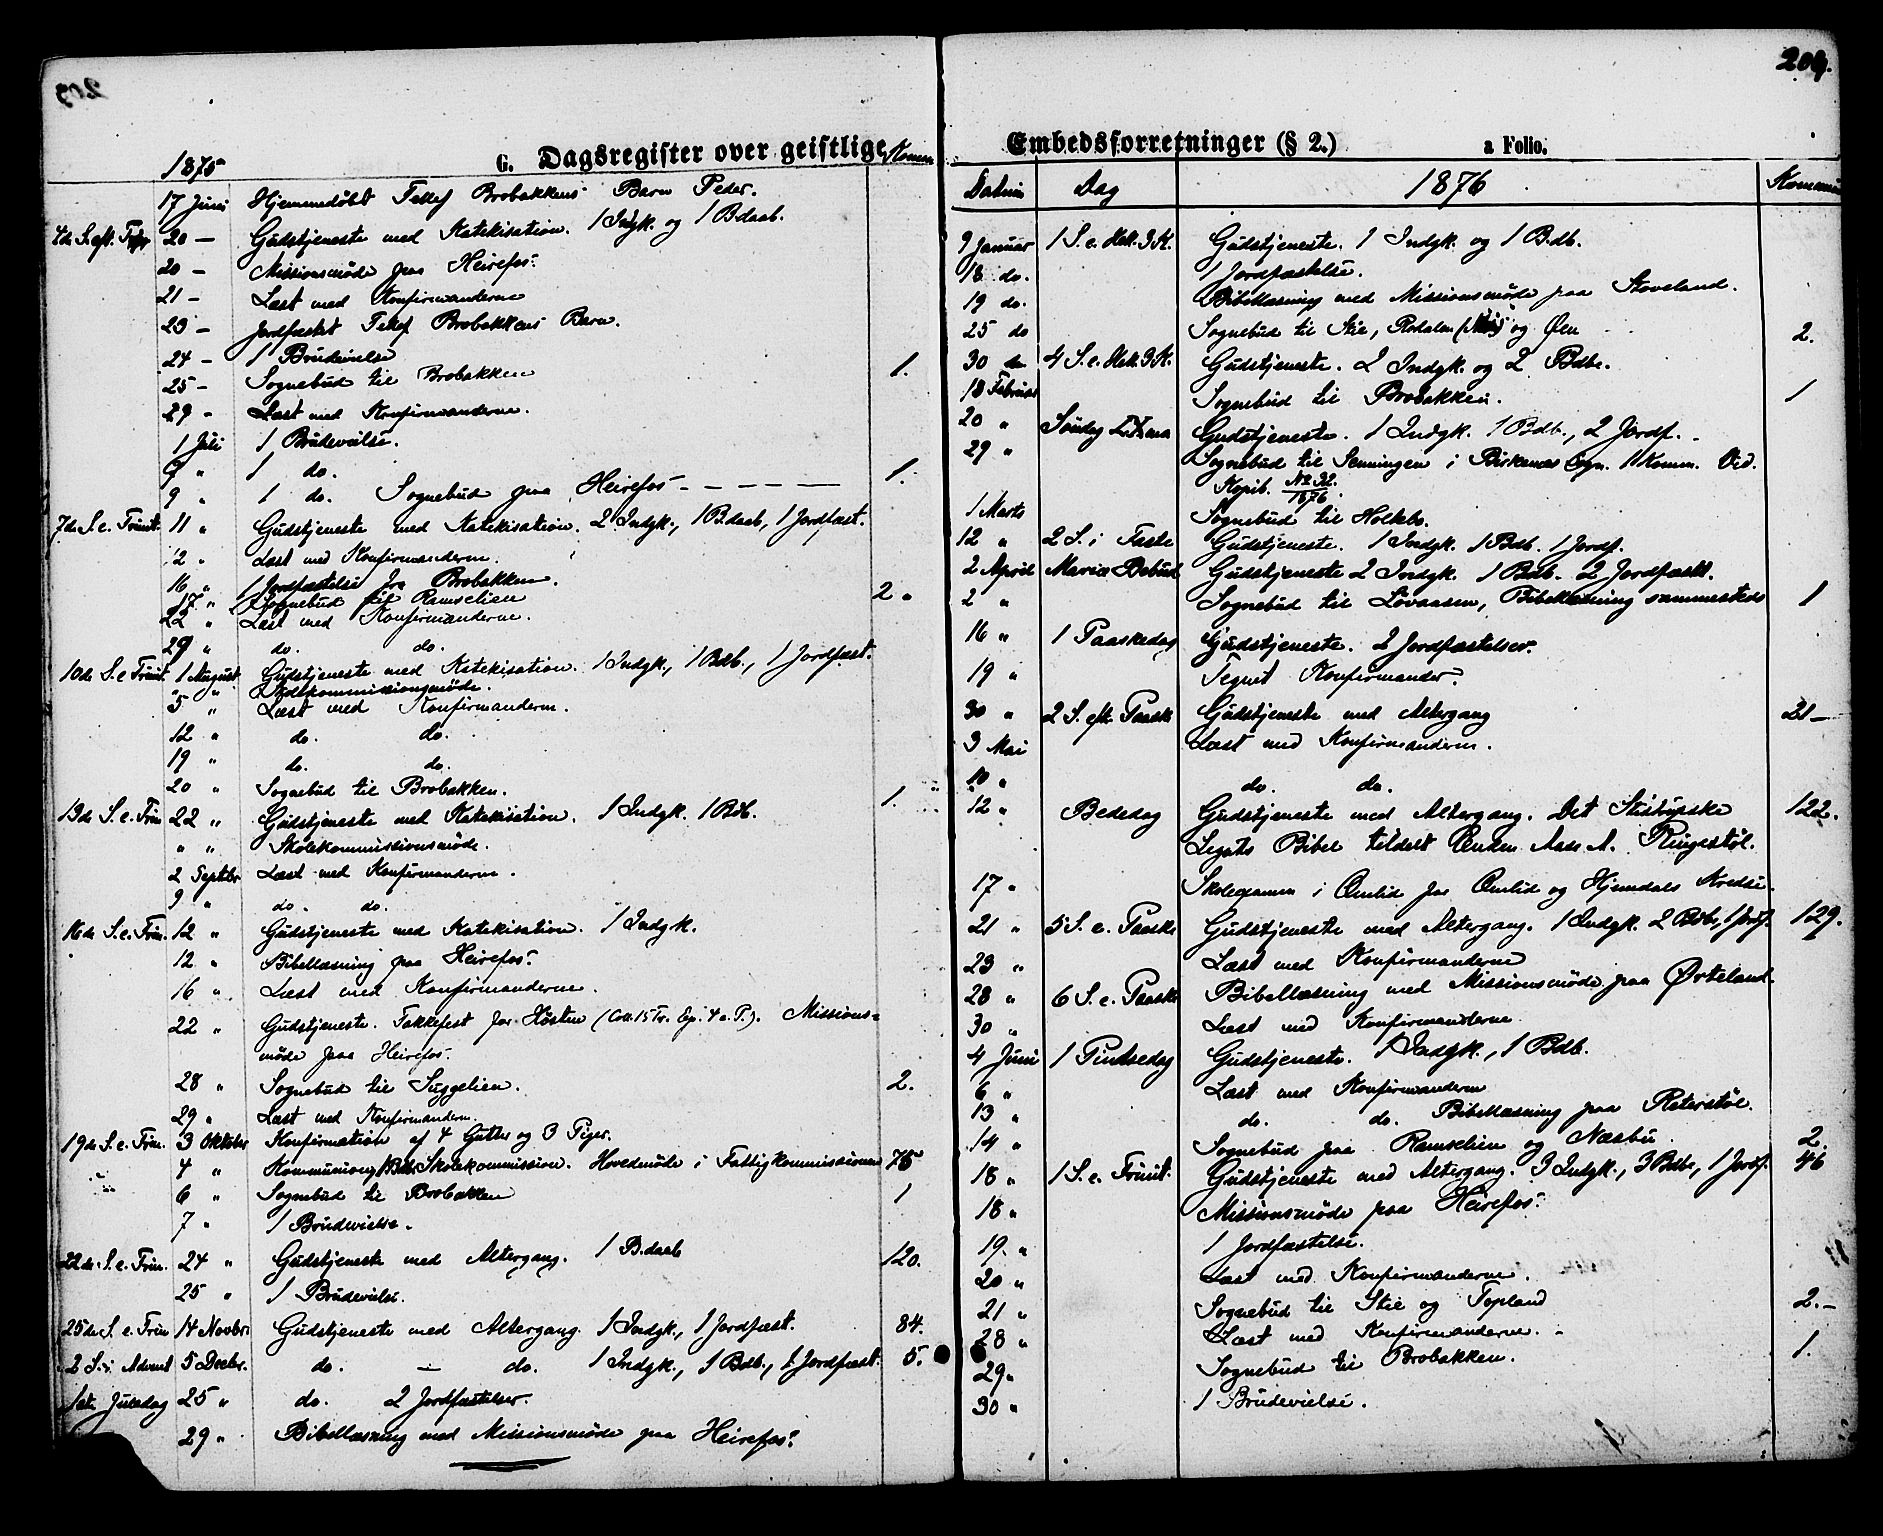 204.
G. Dagsregister over geistlige
1875 Komm
17 Juni Hjemmedøbt Tellef Brobakkens Barn Peder.
4de S. eft. Tr 20 — Gudstjeneste med Katekisation. 1 Indgk. og 1 B.daab.
20 — Missionsmøde paa Heirefos.
21 — Læst med Konfirmanderne
23 — Jordfæstet Tellef Brobakkens Barn.
24 — 1 Brudevielse
25 — Sognebud til Brobakken 1.
29 — Læst med Konfirmanderne.
1 Juli 1 Brudevielse.
9 " 1 do.
9 " 1 do. Sognebud paa Heirefos — — — — — 1.
7de S. e. Trinit. 11 " Gudstjeneste med Katekisation. 2 Indgk., 1 B.daab, 1 Jordfæst.
12 " Læst med Konfirmanderne.
16 " 1 Jordfæstelse fra Brobakken.
17 " Sognebud til Ramselien 2 "
22 " Læst med Konfirmanderne.
29 " do. do.
10de S. e Trinit. 1 August Gudstjeneste med Katekisation. 1 Indgk., 1 Bdb., 1 Jordfæst.
" " Skolekommissionsmøde.
5 " Læst med Konfirmanderne.
12 " do. do.
19 " do. do.
20 " Sognebud til Brobakken. 1.
13de S. e. Trin 22 " Gudstjeneste med Katekisation. 1 Indgk. 1 Bdb.
" " Skolekommissionsmøde.
2 Septbr Læst med Konfirmanderne.
9 " do. do.
16de S. e. Trin. 12 " Gudstjeneste med Katekisation. 1 Indgk.
12 " Bibellæsning paa Heirefos.
16 " Læst med Konfirmanderne.
22 " Gudstjeneste. Takkefest for Høsten (Coll. 15 Tr. Ep. 4 a. P.). Missions=
møde paa Heirefos.
28 " Sognebud til Suggelien. 2.
29 " Læst med Konfirmandern.
19de S. e. Trin. 3 Oktober Konfirmation af 4 Gutter og 3 Piger.
4 " Kommunion, Skolekommission. Hovedmøde i Fattigkommissionen 75
6 " Sognebud til Brobakken 1
7 " 1 Brudevielse.
22de S. e. Trin. 24 " Gudstjeneste med Altergang. 1 B.daab 120.
25 " 1 Brudevielse.
25de S. e. Trin 14 Novbr. Gudstjeneste med Altergang. 1 Indgk., 1 Jordfæst. 84.
2 S. i Advent 5 Decbr. do. — do. 1 Indgk., 1 Bdb., 1 Jordfæst. 5.
1ste Juledag 25 " do. 2 Jordfæstelser.
29 " Bibellæsning med Missionsmøde paa Heirefos.
Embedsforretninger (§ 2.) a Folio.
Datum Dag 1876 Kommun
9 Januar 1 S. e. Hel. 3 K. Gudstjeneste. 1 Indgk. og 1 Bdb.
18 do. 1 Jordfæstelse.
19 do. Bibellæsning med Missionsmøde paa Stoveland.
25 do Sognebud til Stie, og Øen 2.
30 do 4 S. e. Hel. 3 K. Gudstjeneste. 2 Indgk. og 2 Bdbe.
18 Februar Sognebud til Brobakken. 1
20 " Søndag Gudstjeneste. 1 Indgk. 1 Bdb., 2 Jordf.
29 " Sognebud til Senningen i Birkenes Sogn. 1 Komm. Vid.
Kopib. No 32. 1876.
1 Marts Sognebud til Holkebo.
12 " 2 S. i Faste Gudstjeneste. 1 Indgk. 1 Bdb. 1 Jordf.
2 April Mariæ Bebud Gudstjeneste 2 Indgk. 1 Bdb. 2 Jordfæst.
2 " Sognebud til Løvaasen, Bibellæsning sammesteds 1
16 " 1 Paaskedag Gudstjeneste. 2 Jordfæstelser.
19 " Tegnet Konfirmander.
30 " 2 S. eft. Paaske Gudstjeneste med Altergang 21 —
3 Mai Læst med Konfirmandern.
10 " do. do.
12 " Bededag Gudstjeneste med Altergang. Det Stistrupske 122.
Legats Bibel tildelt Enken M. Ringestøl.
17 " Skoleexamen i Omlid for Omlid og Hjemdals Kredse.
21 " 5 S. e. Paaske Gudstjeneste med Altergang. 1 Indgk. 2 Bdbe, 1 Jordf. 129.
23 " Læst med Konfirmanderne
28 " 6 S. e. Paaske Bibellæsning med Missionsmøde paa Øvreland.
30 " Læst med Konfirmanderne
4 Juni 1 Pintsedag Gudstjeneste. 1 Indgk., 1 Bdb.
6 " Læst med Konfirmanderne
13 " do. do. Bibellæsning paa Reterstøl.
14 " Sognebud paa Ramselien og Næsbu. 2.
18 " 1 S. e. Trinit. Gudstjeneste med Altergang. 3 Indgk., 3 Bdbe, 1 Jordf. 46
18 " Missionsmøde paa Heirefos.
19. " 1 Jordfæstelse.
20 " Læst med Konfirmanderne.
21 " Sognebud til Stie og Topland 2.—
28 " Læst med Konfirmanderne.
29 " Sognebud til Brobakken. 1.
30 " 1 Brudevielse.